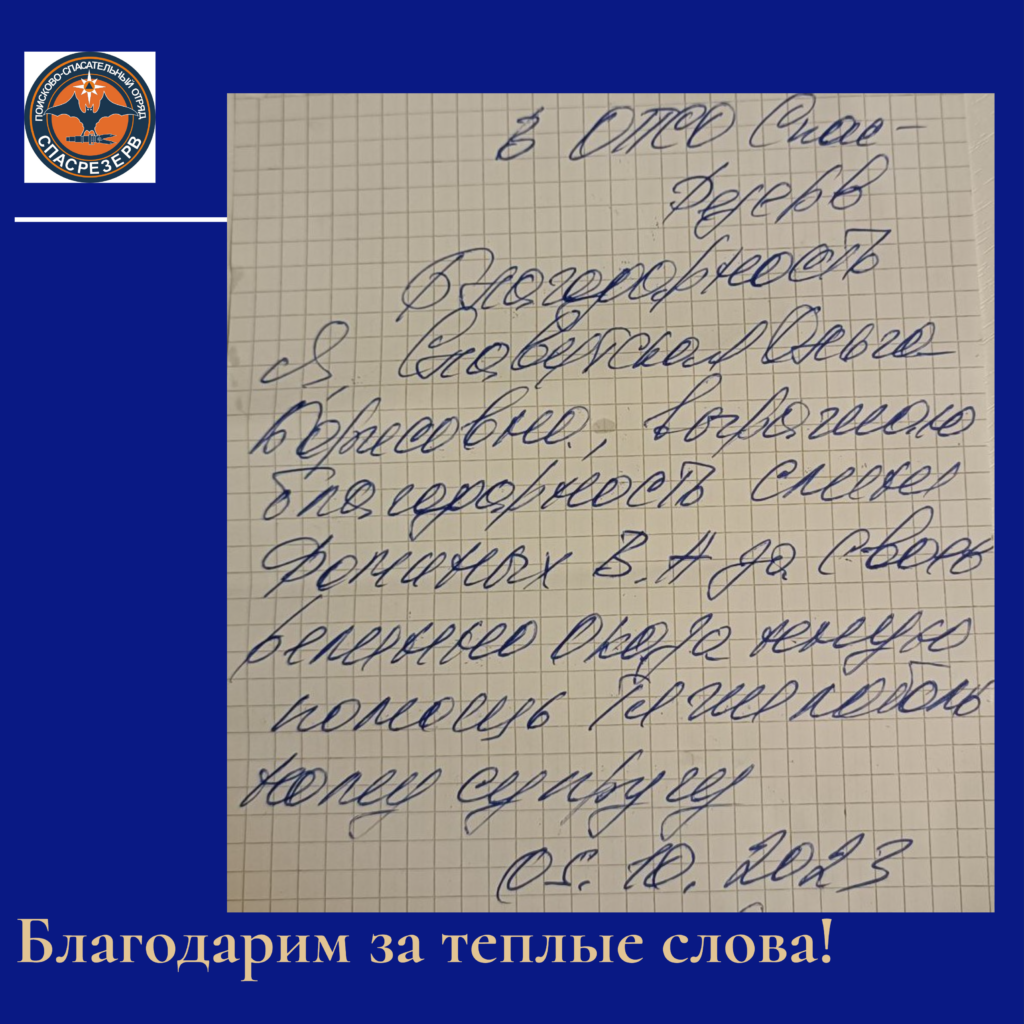 ПОИСКОВО-СПАСАТЕЛЬНЫЙ ОТРЯД
СПАСРЕЗЕРВ
в ОТСО Спас-
Резерв
Благодарность
Я, Ольга
Борисовна, выражаю
благодарность смене
Фоминых В.А за своев
ременно оказанную
помощь тяжелоболь
ному супругу
05.10.2023
Благодарим за теплые слова!